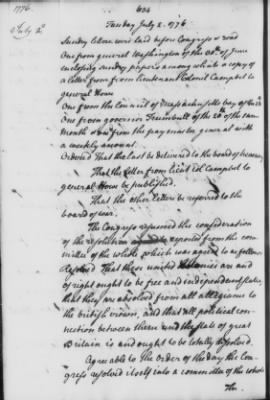 1776.
634
July 2d
Tuesday July 2. 1776.
Sundry letters were laid before Congress & read
One from general Washington of the 30th of June
enclosing sundry papers among which a copy of
a letter from lieutenant Colonel Campbel to
general Howe
One from the Council of Massachusetts bay of the
One from governor Trumbull of the 20 of the same
Month & one from the pay master general with
a weekly account.
Ordered That the last be delivered to the board of treasury
That the letter from lieut Col Campbel to
general Howe be published.
That the other letters be referred to the
board of war.
The Congress resumed the consideration
of the resolution reported from the com
mittee of the whole which was agreed to as follows
Resolved That these united Colonies are and
of right ought to be free and independent states,
that they are absolved from all allegiance to
the british crown, and that all political con
nection between them and the state of great
Britain is and ought to be totally dissolved.
Agreeable to the order of the day the Con
gress resolved itself into a committee of the whole
The